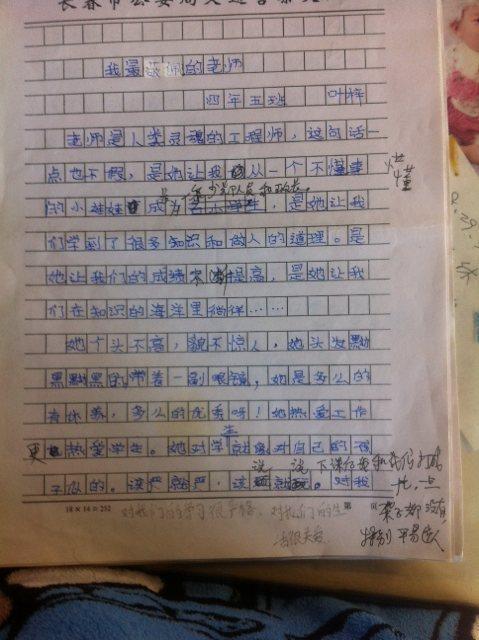 我最敬佩的老师
四年五班 叶梓
老师是人类灵魂的工程师，这句话一
点也不假，是她让我从一个不懂事 懂
的小娃娃成为 是她让我
们学到了很多知识和做人的道理。是
她让我们的成绩不断提高，是她让我
们在知识的海洋里徜徉……
她个头不高，貌不惊人，她头发黝
黑黝黑的带着一副眼镜，她是多么的
有休养，多么的优秀呀！她热爱工作
更热爱学生。她对学生就像对自己的孩
子似的。该严就严，该 就 。对我
18×14=252
对我们的学习很严格，对我们的生
活很关爱
下课后 和我们打成
一片，一点
架子都没有，
特别平易近人